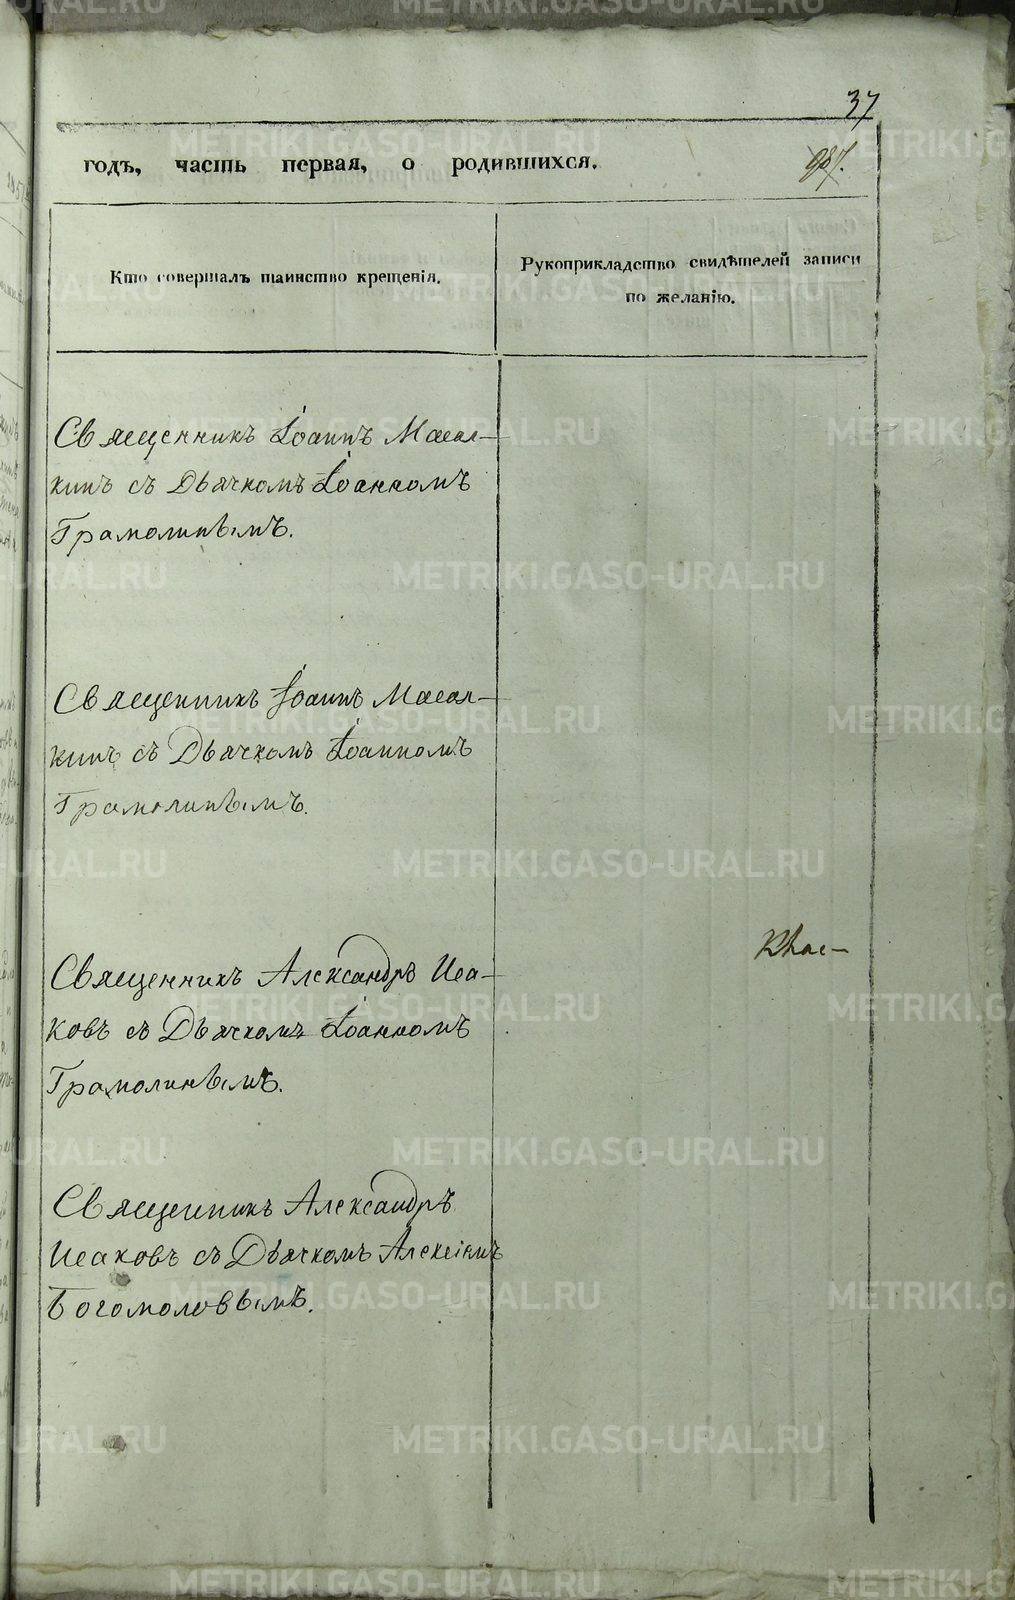 37
годъ, часть первая, о родившихся.
987.
Кто совершалъ таинство крещенія.
Рукоприкладство свидѣтелей записи
по желанію.
Священникъ Іоаннъ Масал-
кинъ съ Дьячкомъ Іоанномъ
Грамолинымъ.
Священникъ Іоаннъ Масал-
кинъ съ Дьячкомъ Іоанномъ
Грамолинымъ.
Священникъ Александръ Иса-
ковъ съ Дьячкомъ Іоанномъ
Грамолинымъ.
Священникъ Александръ
Исаковъ съ Дьячкомъ Алексіемъ
Богомоловымъ.
METRIKI.GASO-URAL.RU